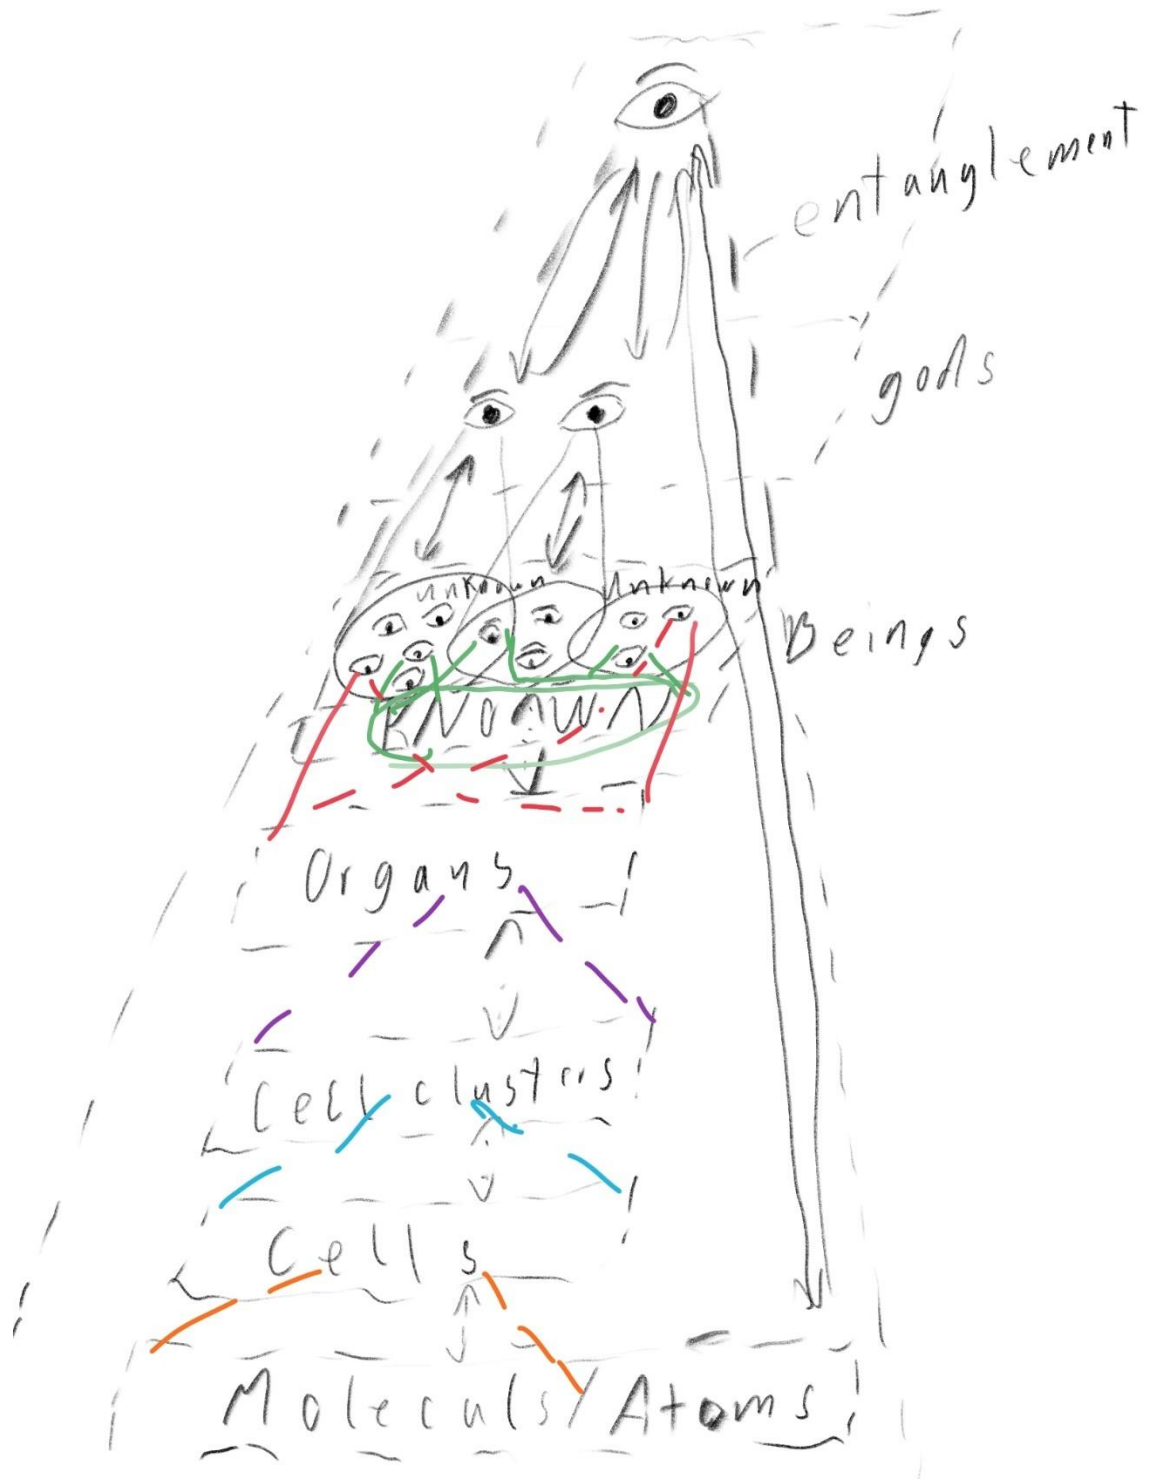 entanglement
gods
unknown
Unknown
Beings
KNOWN
Organs
Cell clusters
Cells
Moleculs/Atoms